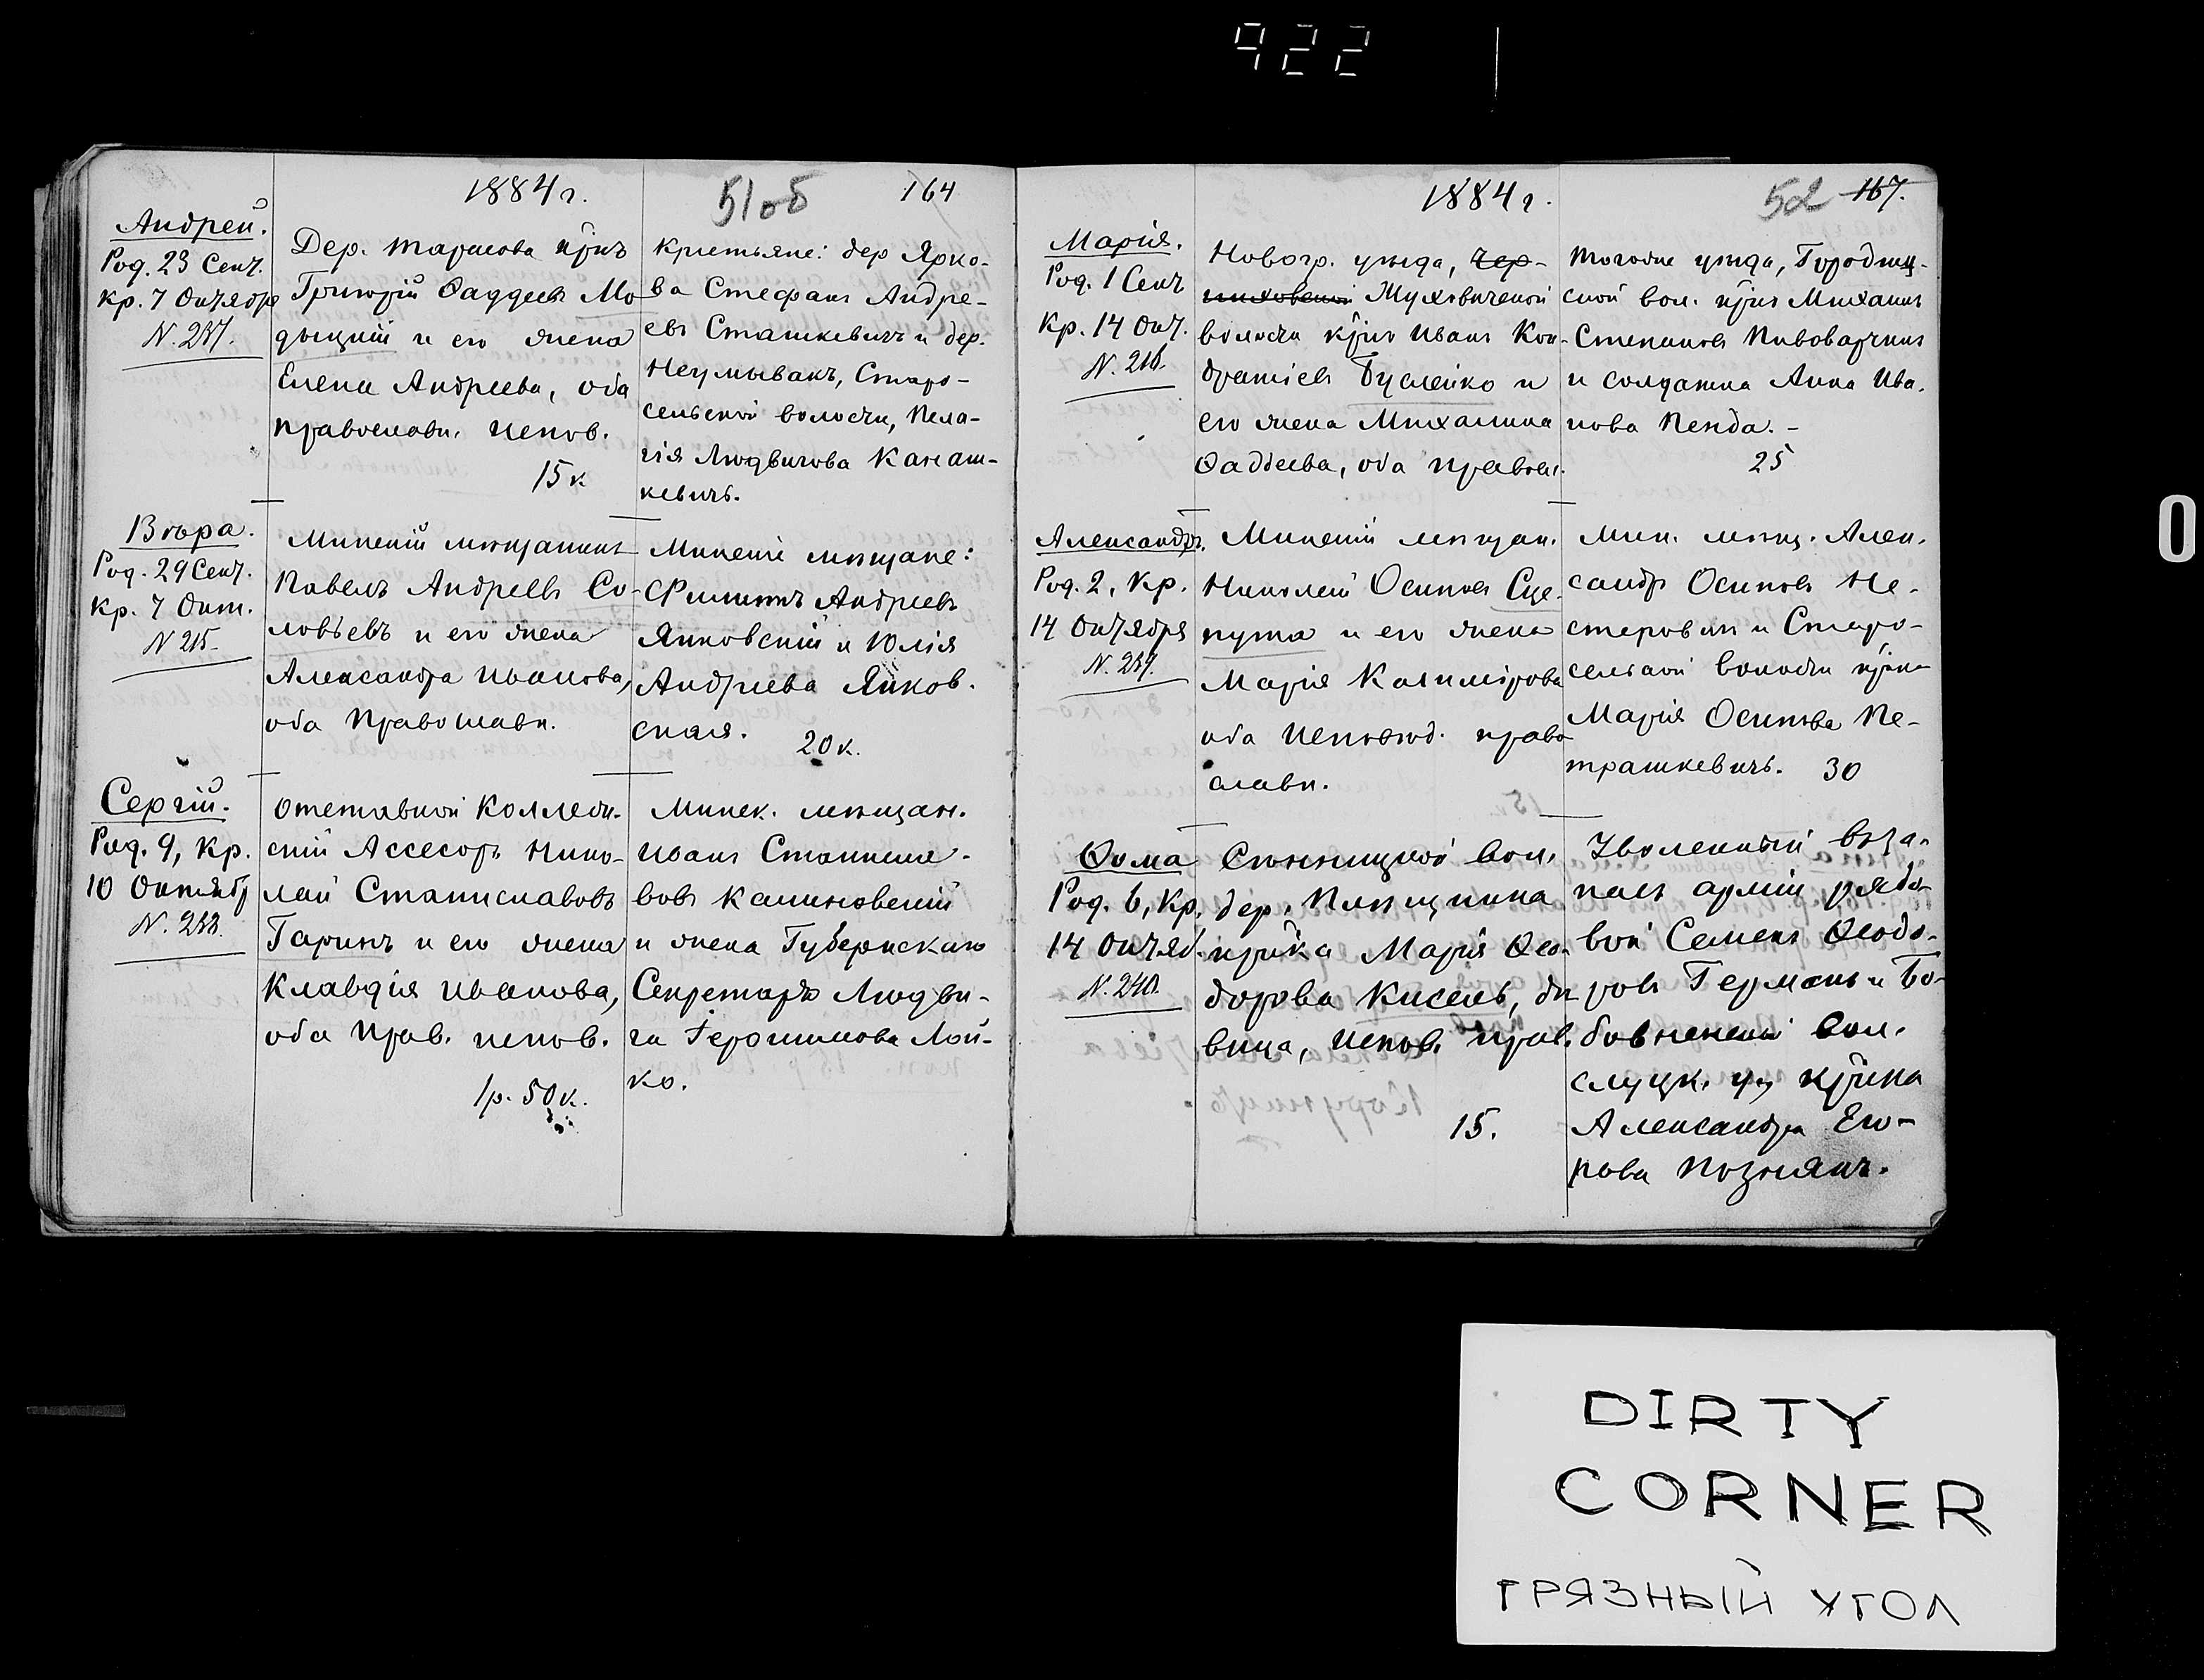 422
1884 г.
51об
164
Андрей.
Род. 23 Сент.
Кр. 7 Октября
N. 237.
Дер. Тарасова кр-нъ
Григорій Ѳаддеевъ Мо
дзицкій и его жена
Елена Андреева, оба
православн. испов.
15 к
Крестьяне: дер Ярко-
ва Стефанъ Андре-
евъ Сташкевичъ и дер.
Неумывакъ, Старо-
сельской волости, Пела-
гія Людвигова Канаш-
кевичъ.
Вѣра.
Род. 29 Сент.
Кр. 7 Окт.
N 215
Минскій мѣщанинъ
Павелъ Андреевъ Со-
ловьевъ и его жена
Александра Иванова,
оба православн.
Минскіе мѣщане:
Филиппъ Андреевъ
Янковскій и Юлія
Андреева Янков-
ская.
20 к.
Сергій.
Род. 9, Кр.
10 Октябр
N. 238.
Отставной Коллеж-
скій Ассесоръ Нико-
лай Станиславовъ
Гаринъ и его жена
Клавдія Иванова,
оба прав. испов.
1р. 50 к.
Минск. мѣщан.
Иванъ Станисла-
вовъ Калиновскій
и жена Губернскаго
Секретаря Людви-
га Іеронимова Лой-
ко.
1884 г.
52 167.
Марія.
Род. 1 Сент
Кр. 14 Окт.
N. 216.
Новогр. уѣзда, Чер-
ниховской Жуховичской
волости кр-нъ Иванъ Кон-
дратіевъ Буслейко и
его жена Михалина
Ѳаддеева, оба правосл.
Тогоже уѣзда, Городищ-
ской вол. кр-нъ Михаилъ
Степановъ Пивоварчикъ
и солдатка Анна Ива-
нова Пенда. -
25
Александръ.
Род. 2, Кр.
14 Октября
N. 239.
Минскій мѣщан.
Николай Осиповъ Сце-
пура и его жена
Марія Казимірова
оба исповѣд. право
славн.
Мин. мѣщ. Алек-
сандр Осиповъ Не-
стеровичъ и Старо-
сельской волости кр-нка
Марія Осипова Пе-
трашкевичъ. 30
Ѳома
Род. 6, Кр.
14 Октяб.
N. 240.
Сѣнницкой вол.
дер.
кр-нка Марія Ѳео-
дорова Кисель, дѣ
вица, испов. прав.
15.
Уволенный въ за-
пасъ арміи рядо-
вой Семенъ Ѳеодо-
ровъ Германъ и Бо-
бовненской вол.
Слуцк. уѣз кр-нка
Александра Его-
рова Познякъ.
0
DIRTY
CORNER
ГРЯЗНЫЙ УГОЛ